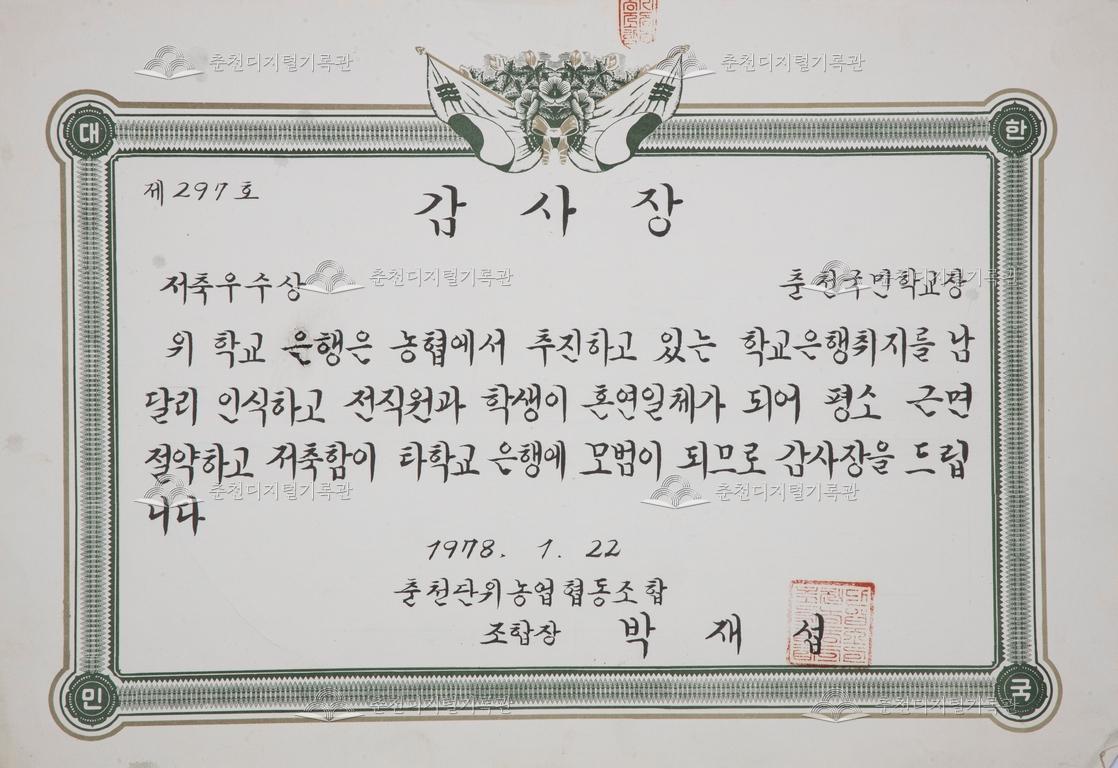 춘천디지털기록관 춘천디지털기록관
대 한
제297호
감 사 장
저축우수상 춘천국민학교장
춘천디지털기록관 춘천디지털기록관
위 학교 은행은 농협에서 추진하고 있는 학교은행취지를 남
달리 인식하고 전직원과 학생이 혼연일체가 되어 평소 근면
절약하고 저축함이 타학교 은행에 모범이 되므로 감사장을 드립
니다
춘천디지털기록관 춘천디지털기록관
1978. 1. 22
춘천단위농업협동조합
조합장 박 재 섭
민 국
춘천디지털기록관 춘천디지털기록관